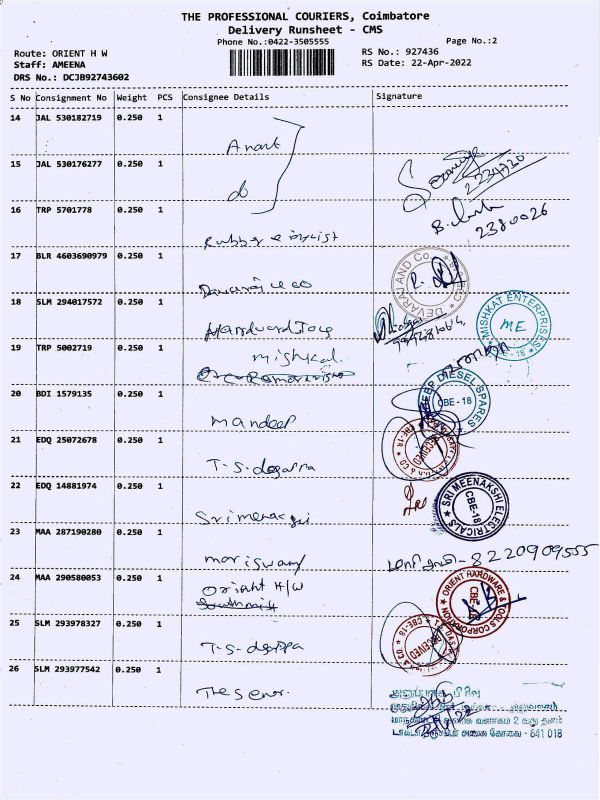 THE PROFESSIONAL COURIERS, Coimbatore
Delivery Runsheet - CMS
Phone No.:0422-3505555
Page No.:2
Route: ORIENT H W
Staff: AMEENA
DRS No.: DCJB92743602
RS No.: 927436
RS Date: 22-Apr-2022
S No Consignment No Weight PCS Consignee Details Signature
14 JAL 530182719 0.250 1 Anant
15 JAL 530176277 0.250 1 do 2234720
16 TRP 5701778 0.250 1 Rubber 2380026
17 BLR 4603690979 0.250 1 DEVARAJ AND Co.
18 SLM 294017572 0.250 1 MISHKAT ENTERPRISES ME
19 TRP 5002719 0.250 1 mishkal.
20 BDI 1579135 0.250 1 mandeep DIESEL SPARES CBE - 18
21 EDQ 25072678 0.250 1 T.S. RECEIVED
22 EDQ 14881974 0.250 1 SRI MEENAKSHI ELECTRICALS CBE-18
23 MAA 287190280 0.250 1 mariswamy 8220909555
24 MAA 290580053 0.250 1 Orient H/W ORIENT HARDWARE & TOOLS CORPORATION CBE-18
25 SLM 293978327 0.250 1 T.S. RECEIVED CBE-18
26 SLM 293977542 0.250 1 The
வளாகம் 2 வது தளம்
கோவை - 641 018